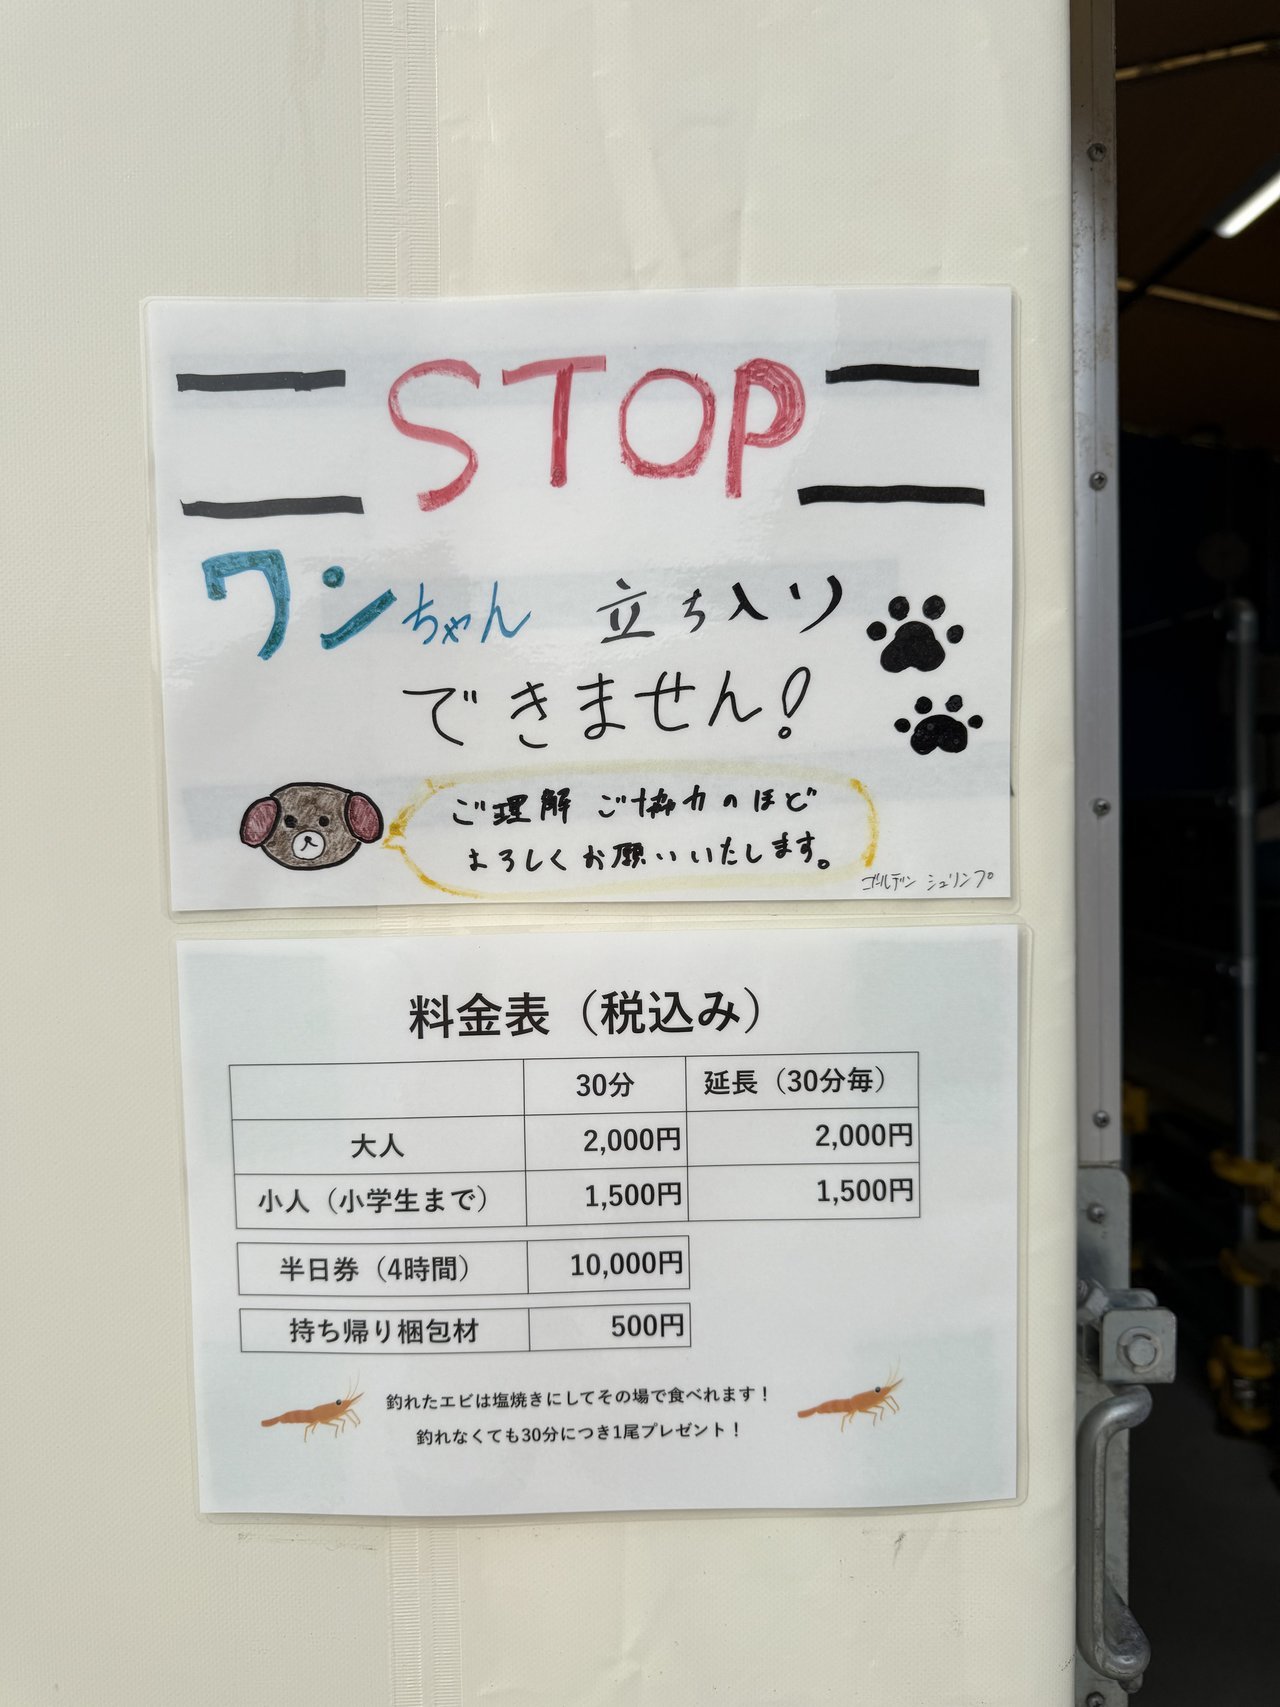 STOP
ワンちゃん 立ち入り
できません!
ご理解 ご協力のほど
よろしくお願いいたします。
ゴールデン シュリンプ
料金表（税込み）
30分 延長（30分毎）
大人 2,000円 2,000円
小人（小学生まで） 1,500円 1,500円
半日券（4時間） 10,000円
持ち帰り梱包材 500円
釣れたエビは塩焼きにしてその場で食べれます！
釣れなくても30分につき1尾プレゼント！